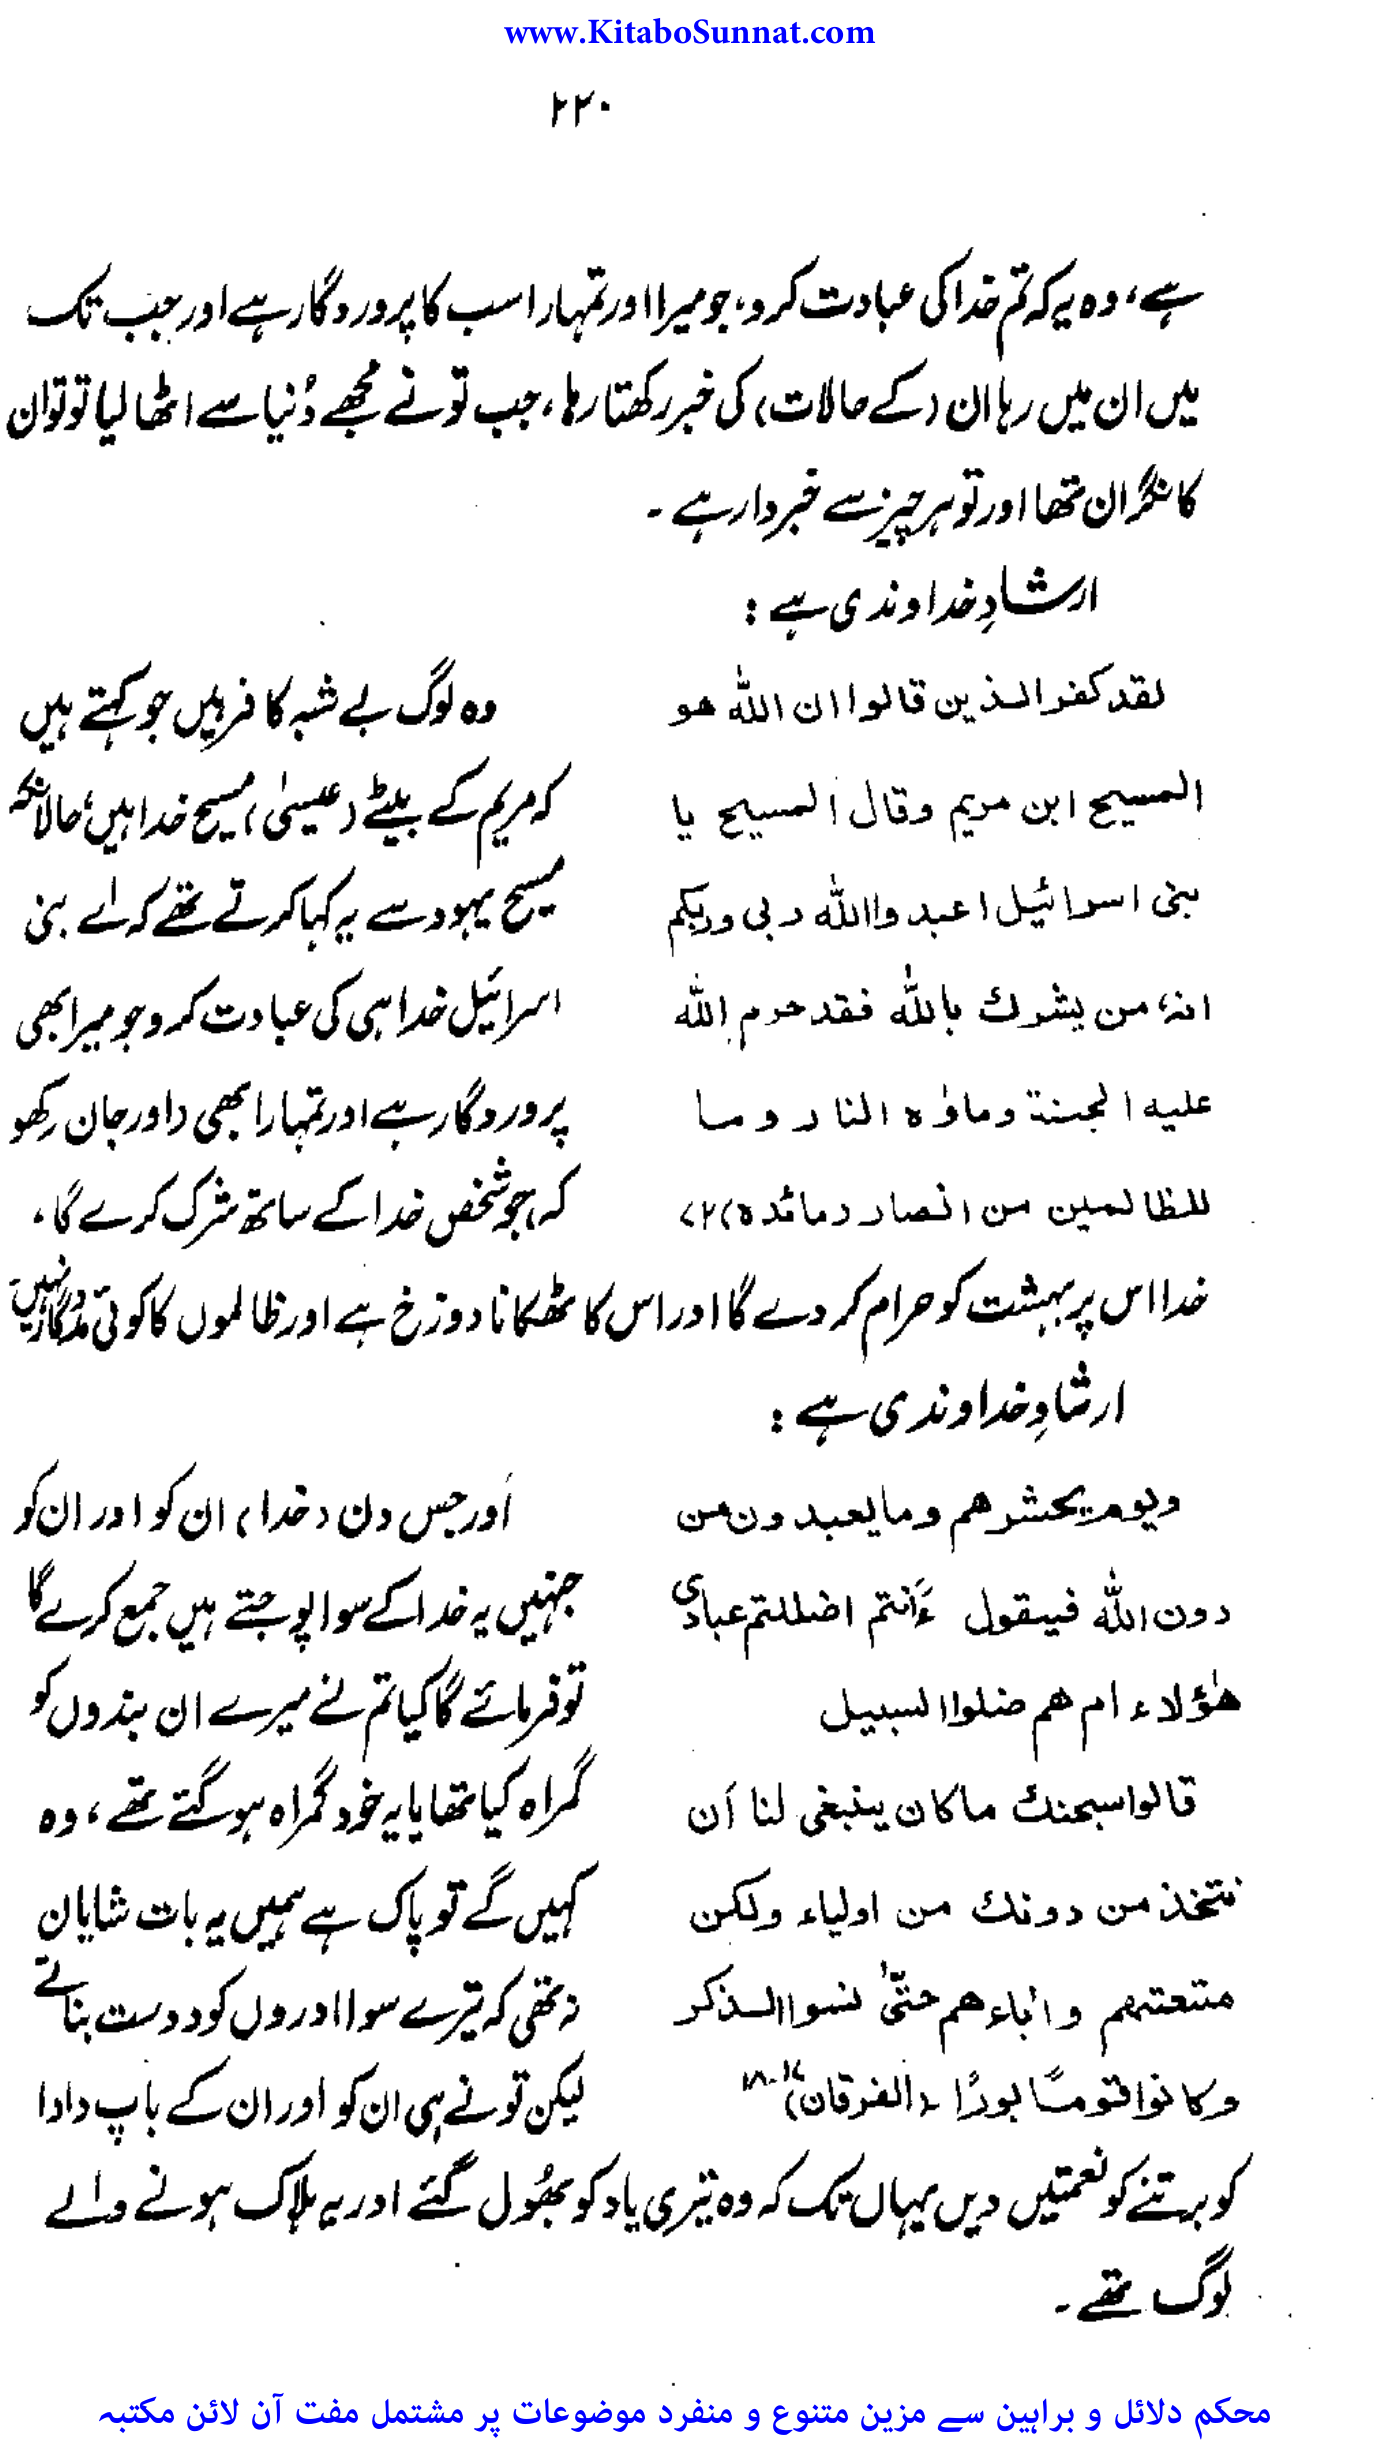 www.KitaboSunnat.com
۲۲۰
ہے، وہ یہ کہ تم خدا کی عبادت کرو، جو میرا اور تمہارا سب کا پروردگار ہے اور جب تک
میں ان میں رہا ان (کے حالات) کی خبر رکھتا رہا، جب تو نے مجھے دُنیا سے اٹھا لیا تو تو ان
کا نگران تھا اور تو ہر چیز سے خبردار ہے ۔
ارشادِ خداوندی ہے :
لقد كفر الذين قالوا ان الله هو
المسيح ابن مريم وقال المسيح يا
بنى اسرائيل اعبدوا الله ربى وربكم
انه من يشرك بالله فقد حرم الله
عليه الجنة وماوٰه النار وما
للظالمين من انصار (مائده) ۷۲
وہ لوگ بے شبہ کافر ہیں جو کہتے ہیں
کہ مریم کے بیٹے (عیسیٰ) مسیح خدا ہیں، حالانکہ
مسیح یہود سے یہ کہا کرتے تھے کہ اے بنی
اسرائیل خدا ہی کی عبادت کرو جو میرا بھی
پروردگار ہے اور تمہارا بھی (اور جان رکھو
کہ) جو شخص خدا کے ساتھ شرک کرے گا،
خدا اس پر بہشت کو حرام کر دے گا اور اس کا ٹھکانا دوزخ ہے اور ظالموں کا کوئی مددگار نہیں
ارشادِ خداوندی ہے :
ويوم يحشرهم وما يعبدون من
دون الله فيقول ءَأنتم اضللتم عبادى
هٰؤلاء ام هم ضلوا السبيل
قالوا سبحنك ما كان ينبغى لنا أن
نتخذ من دونك من اولياء ولكن
متعتهم واٰباءهم حتىّٰ نسوا الذكر
وكانوا قومًا بورًا ۔ (الفرقان) ۱۷-۱۸
اور جس دن (خدا) ان کو اور ان کو
جنہیں یہ خدا کے سوا پوجتے ہیں جمع کرے گا
تو فرمائے گا کیا تم نے میرے ان بندوں کو
گمراہ کیا تھا یا یہ خود گمراہ ہو گئے تھے، وہ
کہیں گے تو پاک ہے ہمیں یہ بات شایان
نہ تھی کہ تیرے سوا اوروں کو دوست بناتے
لیکن تو نے ہی ان کو اور ان کے باپ دادا
کو برتنے کو نعمتیں دیں یہاں تک کہ وہ تیری یاد کو بھُول گئے اور یہ ہلاک ہونے والے
لوگ تھے ۔
محکم دلائل و براہین سے مزین متنوع و منفرد موضوعات پر مشتمل مفت آن لائن مکتبہ